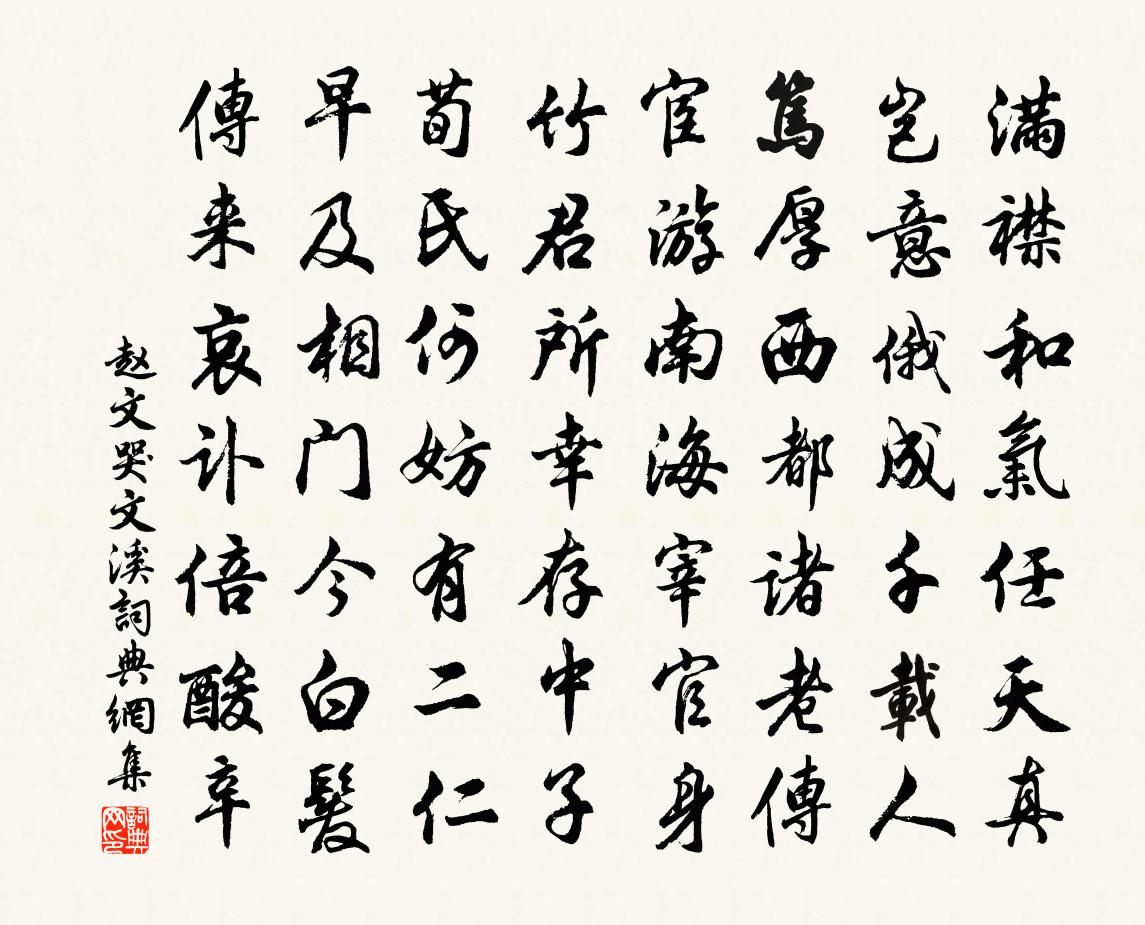 滿襟和氣任天真
豈意俄成千載人
篤厚西都諸老傳
宦游南海宰官身
竹君所幸存中子
荀氏何妨有二仁
早及相门今白髮
傳来哀讣倍酸辛
赵文哭文溪詞典網集
詞典网印